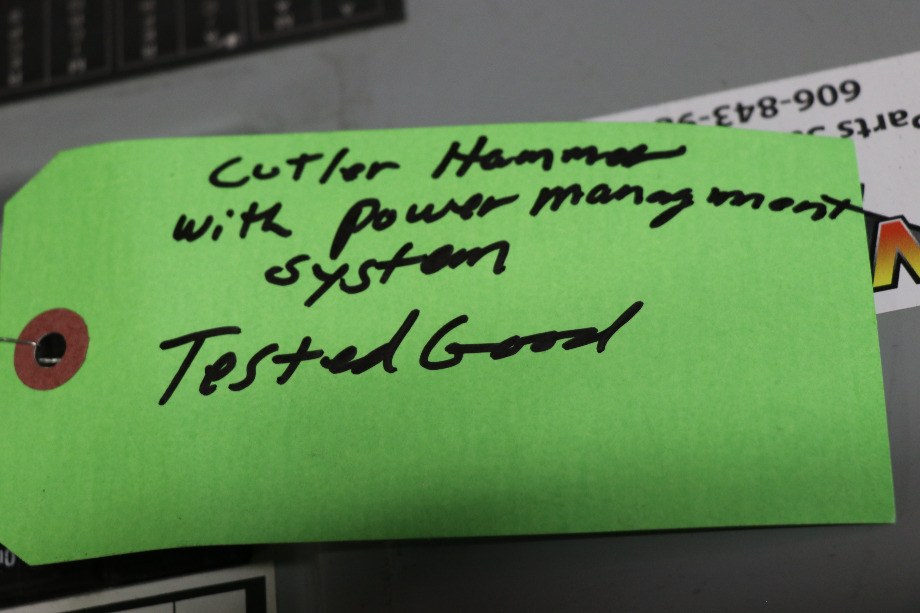 Cutler Hammer
with power managment
system
Tested Good
606-843-9
Parts